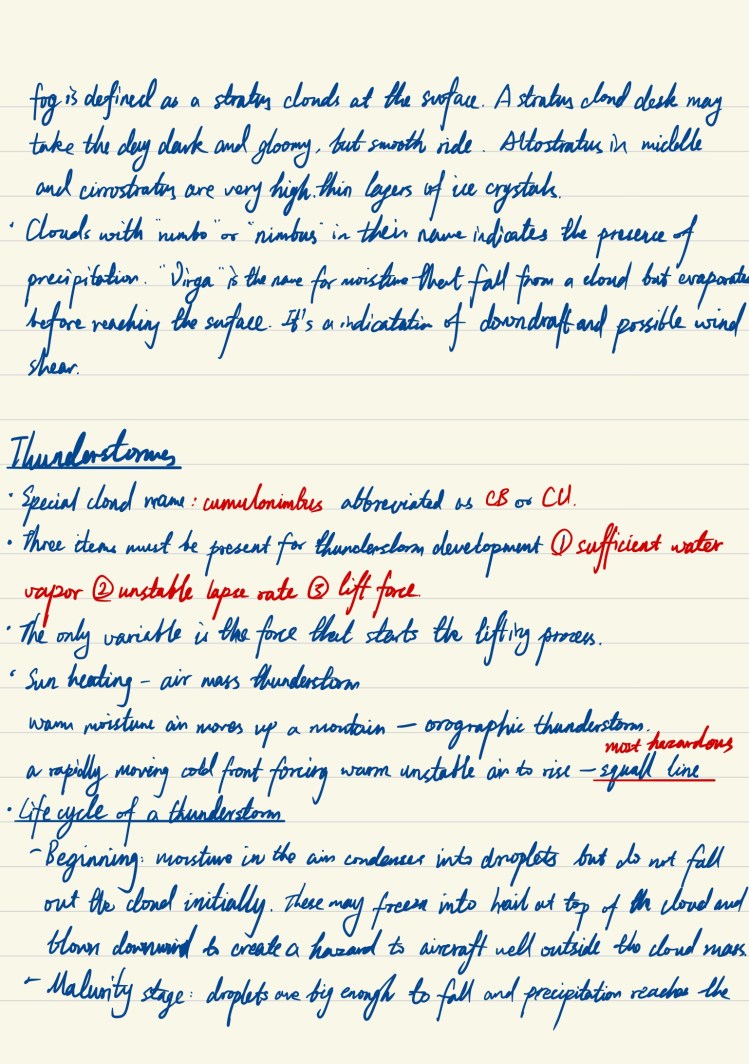 fog is defined as a stratus clouds at the surface. A stratus cloud desk may
take the day dark and gloomy, but smooth ride. Altostratus in middle
and cirrostratus are very high.thin layers of ice crystals.
· Clouds with "numbo" or "nimbus" in their name indicates the presence of
precipitation. "Virga" is the name for moisture that fall from a cloud but evaporates
before reaching the surface. It's a indicatation of downdraft and possible wind
shear.
Thunderstorms
· Special cloud name: cumulonimbus abbreviated as CB or CU.
· Three items must be present for thunderstorm development ① sufficient water
vapor ② unstable lapse rate ③ lift force.
· The only variable is the force that starts the lifting process.
· Sun heating - air mass thunderstorm
warm moisture air moves up a mountain — orographic thunderstorm.
most hazardous
a rapidly moving cold front forcing warm unstable air to rise — squall line
· Life cycle of a thunderstorm
- Beginning: moisture in the air condenses into droplets but do not fall
out the cloud initially. These may freeze into hail at top of the cloud and
blown downwind to create a hazard to aircraft well outside the cloud mass.
- Maturity stage: droplets are big enough to fall and precipitation reaches the